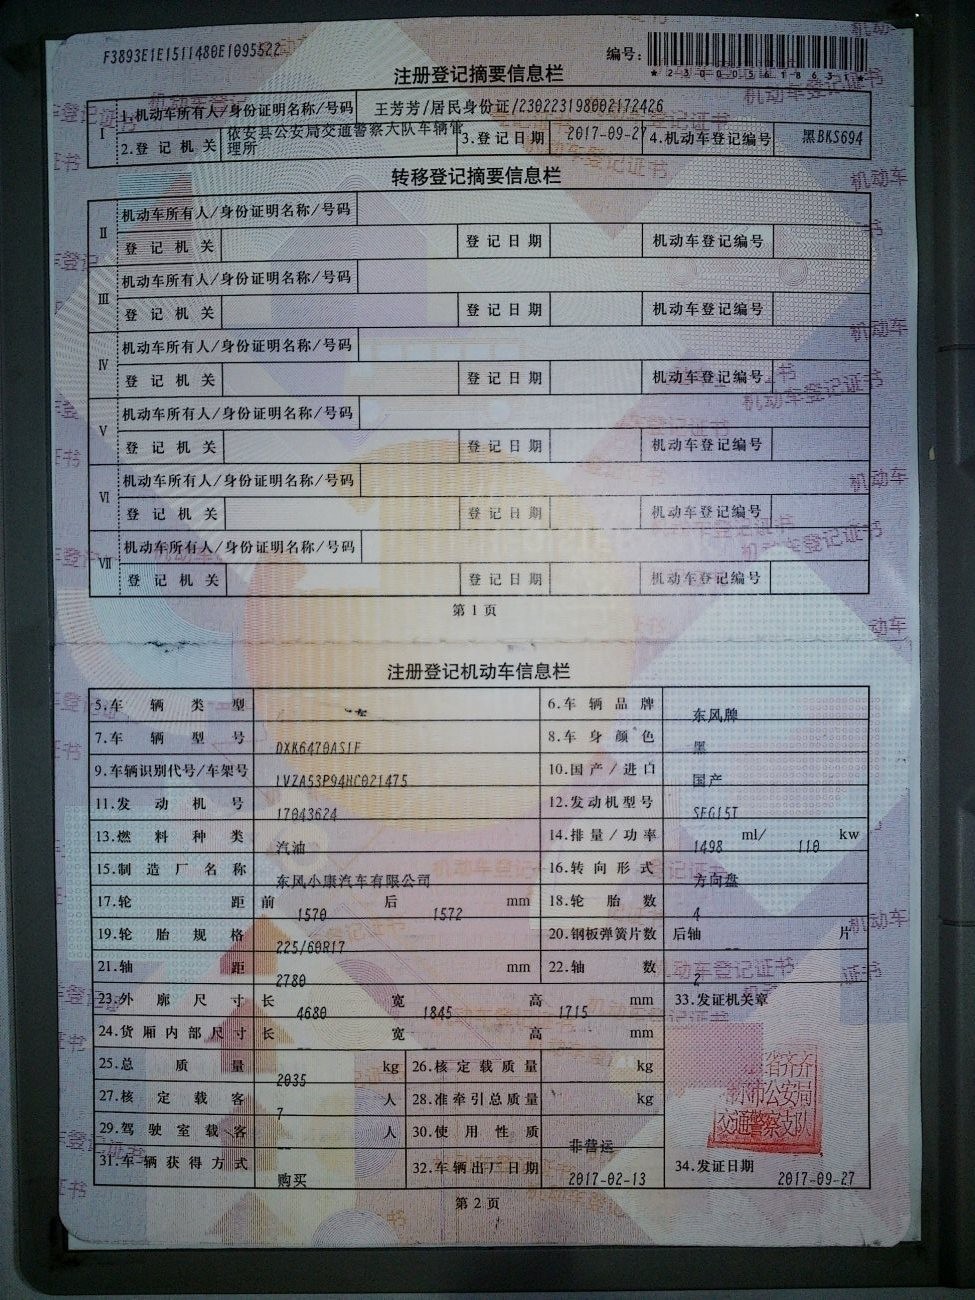 F3893E1E1511480E1095522
编号:
*230005618637*
注册登记摘要信息栏
I 1.机动车所有人/身份证明名称/号码 王芳芳/居民身份证/230223198002172426
2.登记机关 依安县公安局交通警察大队车辆管理所 3.登记日期 2017-09-27 4.机动车登记编号 黑BKS694
转移登记摘要信息栏
II 机动车所有人/身份证明名称/号码
登记机关 登记日期 机动车登记编号
III 机动车所有人/身份证明名称/号码
登记机关 登记日期 机动车登记编号
IV 机动车所有人/身份证明名称/号码
登记机关 登记日期 机动车登记编号
V 机动车所有人/身份证明名称/号码
登记机关 登记日期 机动车登记编号
VI 机动车所有人/身份证明名称/号码
登记机关 登记日期 机动车登记编号
VII 机动车所有人/身份证明名称/号码
登记机关 登记日期 机动车登记编号
第1页
注册登记机动车信息栏
5.车辆类型 6.车辆品牌 东风牌
7.车辆型号 DXK6470AS1F 8.车身颜色 黑
9.车辆识别代号/车架号 LVZA53P94HC021475 10.国产/进口 国产
11.发动机号 17043624 12.发动机型号 SFG15T
13.燃料种类 汽油 14.排量/功率 1498 ml/ 110 kw
15.制造厂名称 东风小康汽车有限公司 16.转向形式 方向盘
17.轮距 前 1570 后 1572 mm 18.轮胎数 4
19.轮胎规格 225/60R17 20.钢板弹簧片数 后轴 -- 片
21.轴距 2780 mm 22.轴数 2
23.外廓尺寸 长 4680 宽 1845 高 1715 mm 33.发证机关章
24.货厢内部尺寸 长 宽 高 mm
25.总质量 2035 kg 26.核定载质量 kg
27.核定载客 7 人 28.准牵引总质量 kg
29.驾驶室载客 -- 人 30.使用性质 非营运
31.车辆获得方式 购买 32.车辆出厂日期 2017-02-13 34.发证日期 2017-09-27
省齐齐
尔市公安局
交通警察支队
第2页